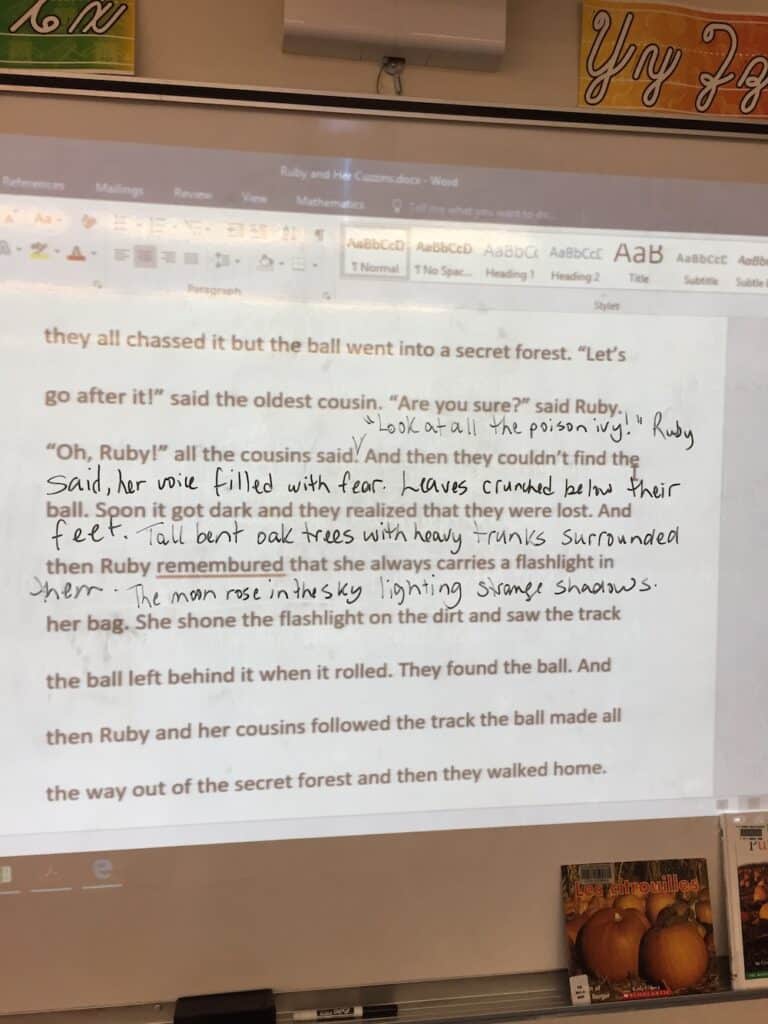 Yy Zz
Ruby and Her Cuzzins.docx - Word
References Mailings Review View Mathematics Tell me what you want to do...
AaBbCcD AaBbCcD AaBbCc AaBbCcC AaB AaBbCcC AaBb
¶ Normal ¶ No Spac... Heading 1 Heading 2 Title Subtitle Subtle
Paragraph Styles
they all chassed it but the ball went into a secret forest. “Let’s
go after it!” said the oldest cousin. “Are you sure?” said Ruby.
"Look at all the poison ivy!" Ruby
“Oh, Ruby!” all the cousins said. And then they couldn’t find the
said, her voice filled with fear. Leaves crunched below their
ball. Soon it got dark and they realized that they were lost. And
feet. Tall bent oak trees with heavy trunks surrounded
then Ruby remembured that she always carries a flashlight in
them. The moon rose in the sky lighting strange shadows.
her bag. She shone the flashlight on the dirt and saw the track
the ball left behind it when it rolled. They found the ball. And
then Ruby and her cousins followed the track the ball made all
the way out of the secret forest and then they walked home.
Les citrouilles
SCHOLASTIC